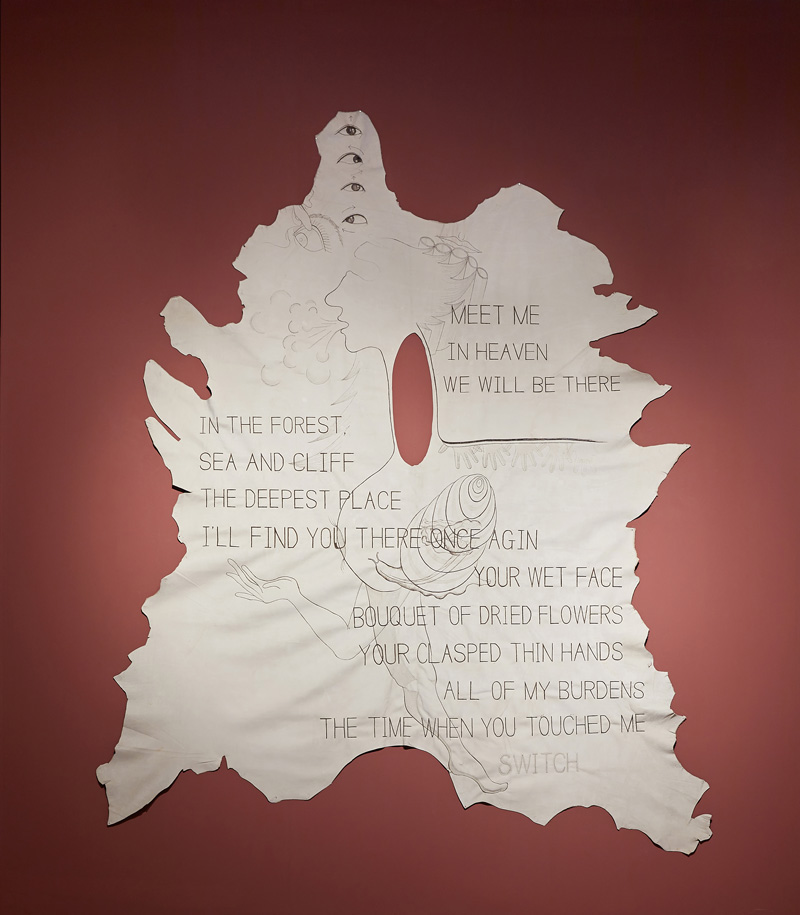 MEET ME
IN HEAVEN
WE WILL BE THERE
IN THE FOREST,
SEA AND CLIFF
THE DEEPEST PLACE
I'LL FIND YOU THERE ONCE AGIN
YOUR WET FACE
BOUQUET OF DRIED FLOWERS
YOUR CLASPED THIN HANDS
ALL OF MY BURDENS
THE TIME WHEN YOU TOUCHED ME
SWITCH